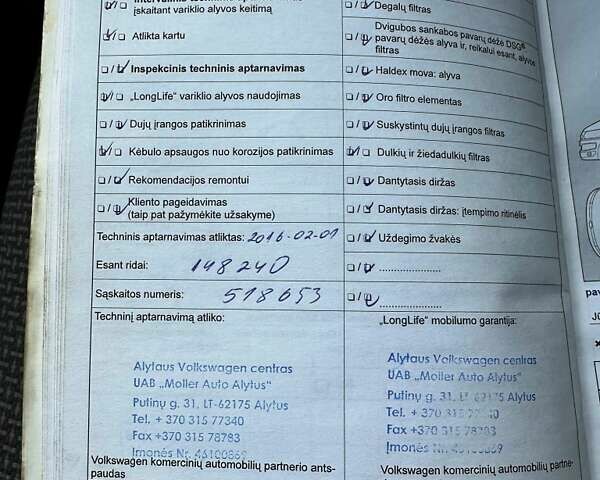 įskaitant variklio alyvos keitimą
Atlikta kartu
Inspekcinis techninis aptarnavimas
„LongLife“ variklio alyvos naudojimas
Dujų įrangos patikrinimas
Kėbulo apsaugos nuo korozijos patikrinimas
Rekomendacijos remontui
Kliento pageidavimas
(taip pat pažymėkite užsakyme)
Techninis aptarnavimas atliktas: 2016-02-01
Esant ridai: 148240
Sąskaitos numeris: 518653
Techninį aptarnavimą atliko:
Alytaus Volkswagen centras
UAB „Moller Auto Alytus“
Putinų g. 31, LT-62175 Alytus
Tel. + 370 315 77340
Fax +370 315 78783
Įmonės Nr. 46100869
Volkswagen komercinių automobilių partnerio ants-
paudas
Degalų filtras
Dvigubos sankabos pavarų dėžė DSG®
pavarų dėžės alyva ir, reikalui esant, alyvos
filtras
Haldex mova: alyva
Oro filtro elementas
Suskystintų dujų įrangos filtras
Dulkių ir žiedadulkių filtras
Dantytasis diržas
Dantytasis diržas: įtempimo ritinėlis
Uždegimo žvakės
„LongLife“ mobilumo garantija:
Alytaus Volkswagen centras
UAB „Moller Auto Alytus“
Putinų g. 31, LT-62175 Alytus
Tel. + 370 315
Fax +370 315
Įmonės Nr.
Volkswagen komercinių automobilių partne-